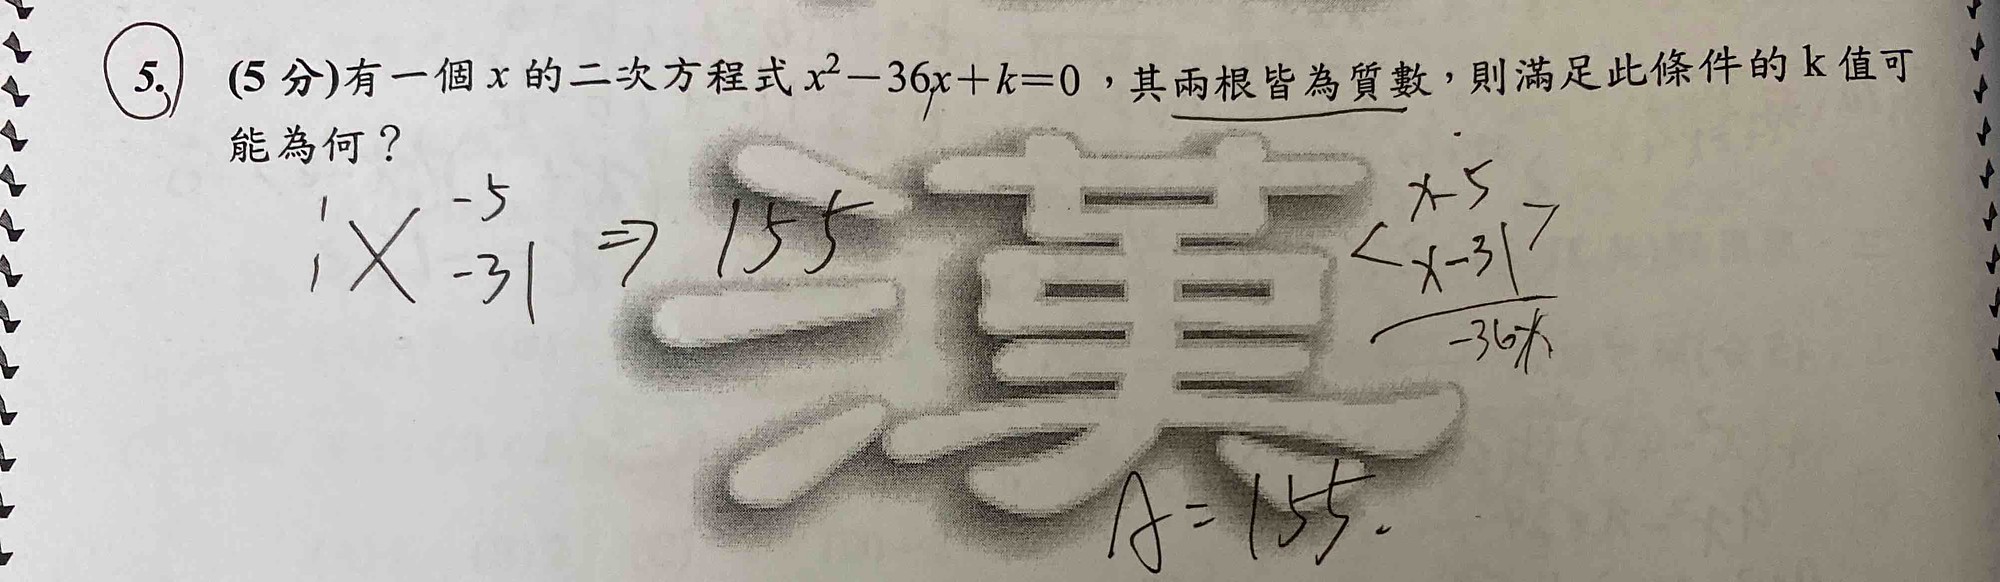 5. (5 分)有一個 x 的二次方程式 x²－36x＋k＝0，其兩根皆為質數，則滿足此條件的 k 值可
能為何？
1 -5
1 -31 ⇒ 155
x-5
x-31
-36x
A=155.
漢